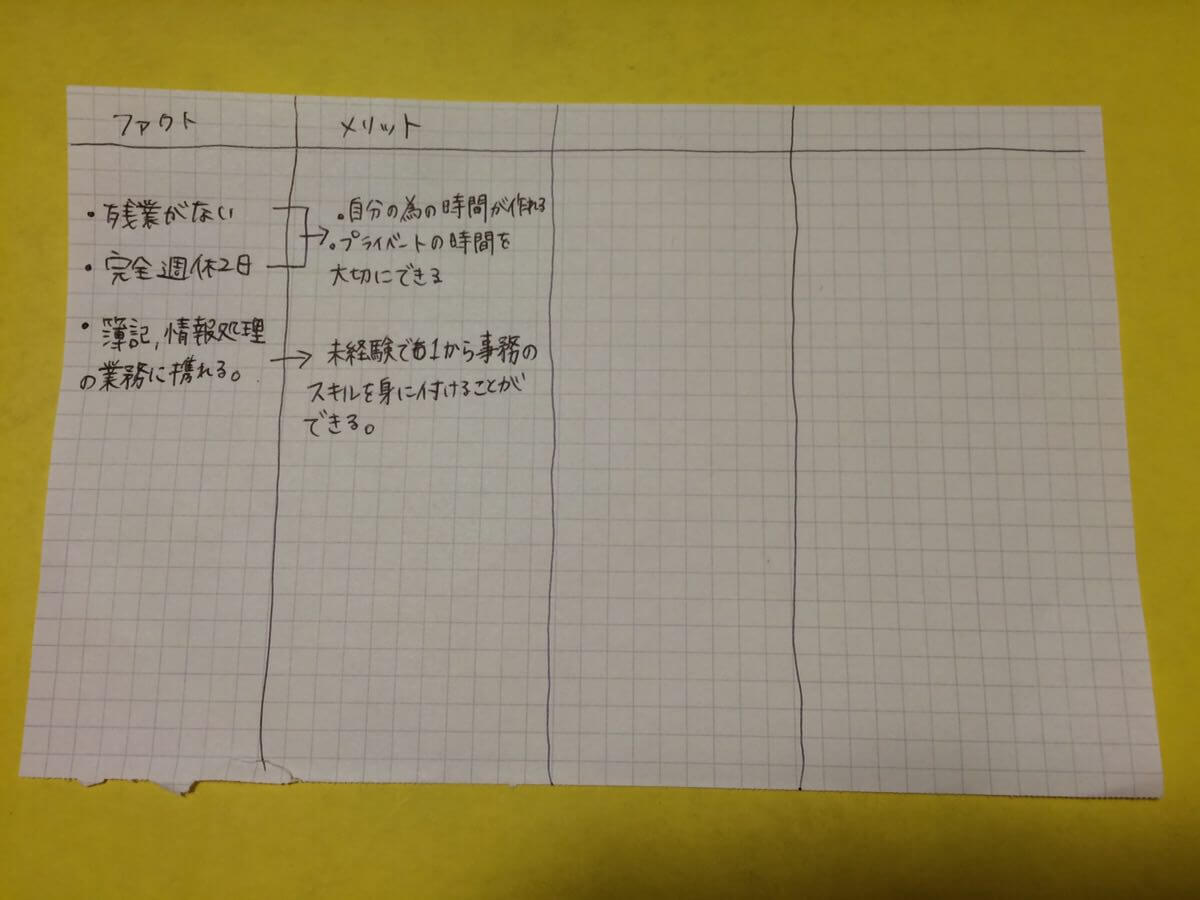 ファクト
メリット
・残業がない
・完全週休2日
・簿記,情報処理
の業務に携れる。
・自分の為の時間が作れる
・プライベートの時間を
大切にできる
未経験でも1から事務の
スキルを身に付けることが
できる。